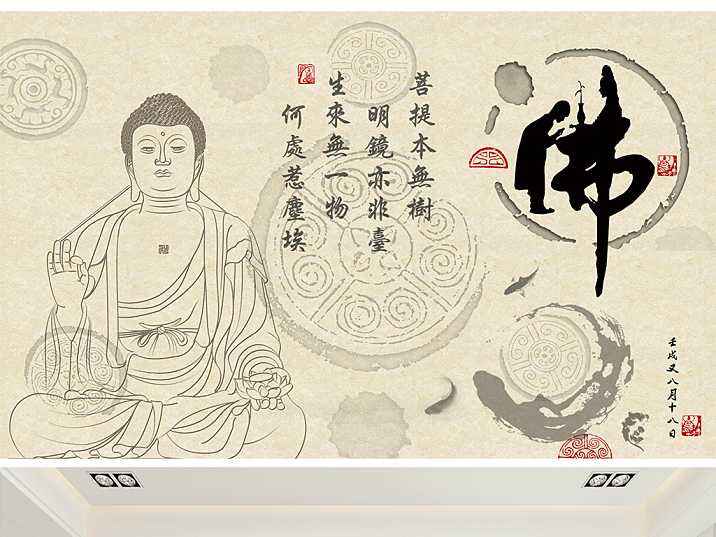 菩提本無樹
明鏡亦非臺
生來無一物
何處惹塵埃
佛
壬戌又八月十八日